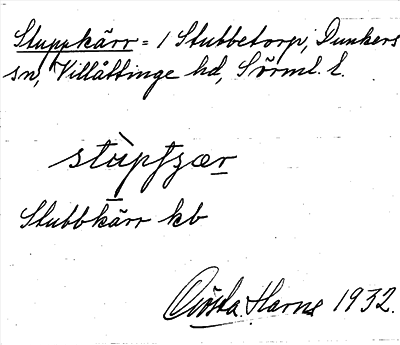 Stuppkärr = 1 Stubbetorp, Dunkers
sn, Villåttinge hd, Sörml. l.
stùpʃzær
Stubbkärr kb
Gösta Harne 1932.